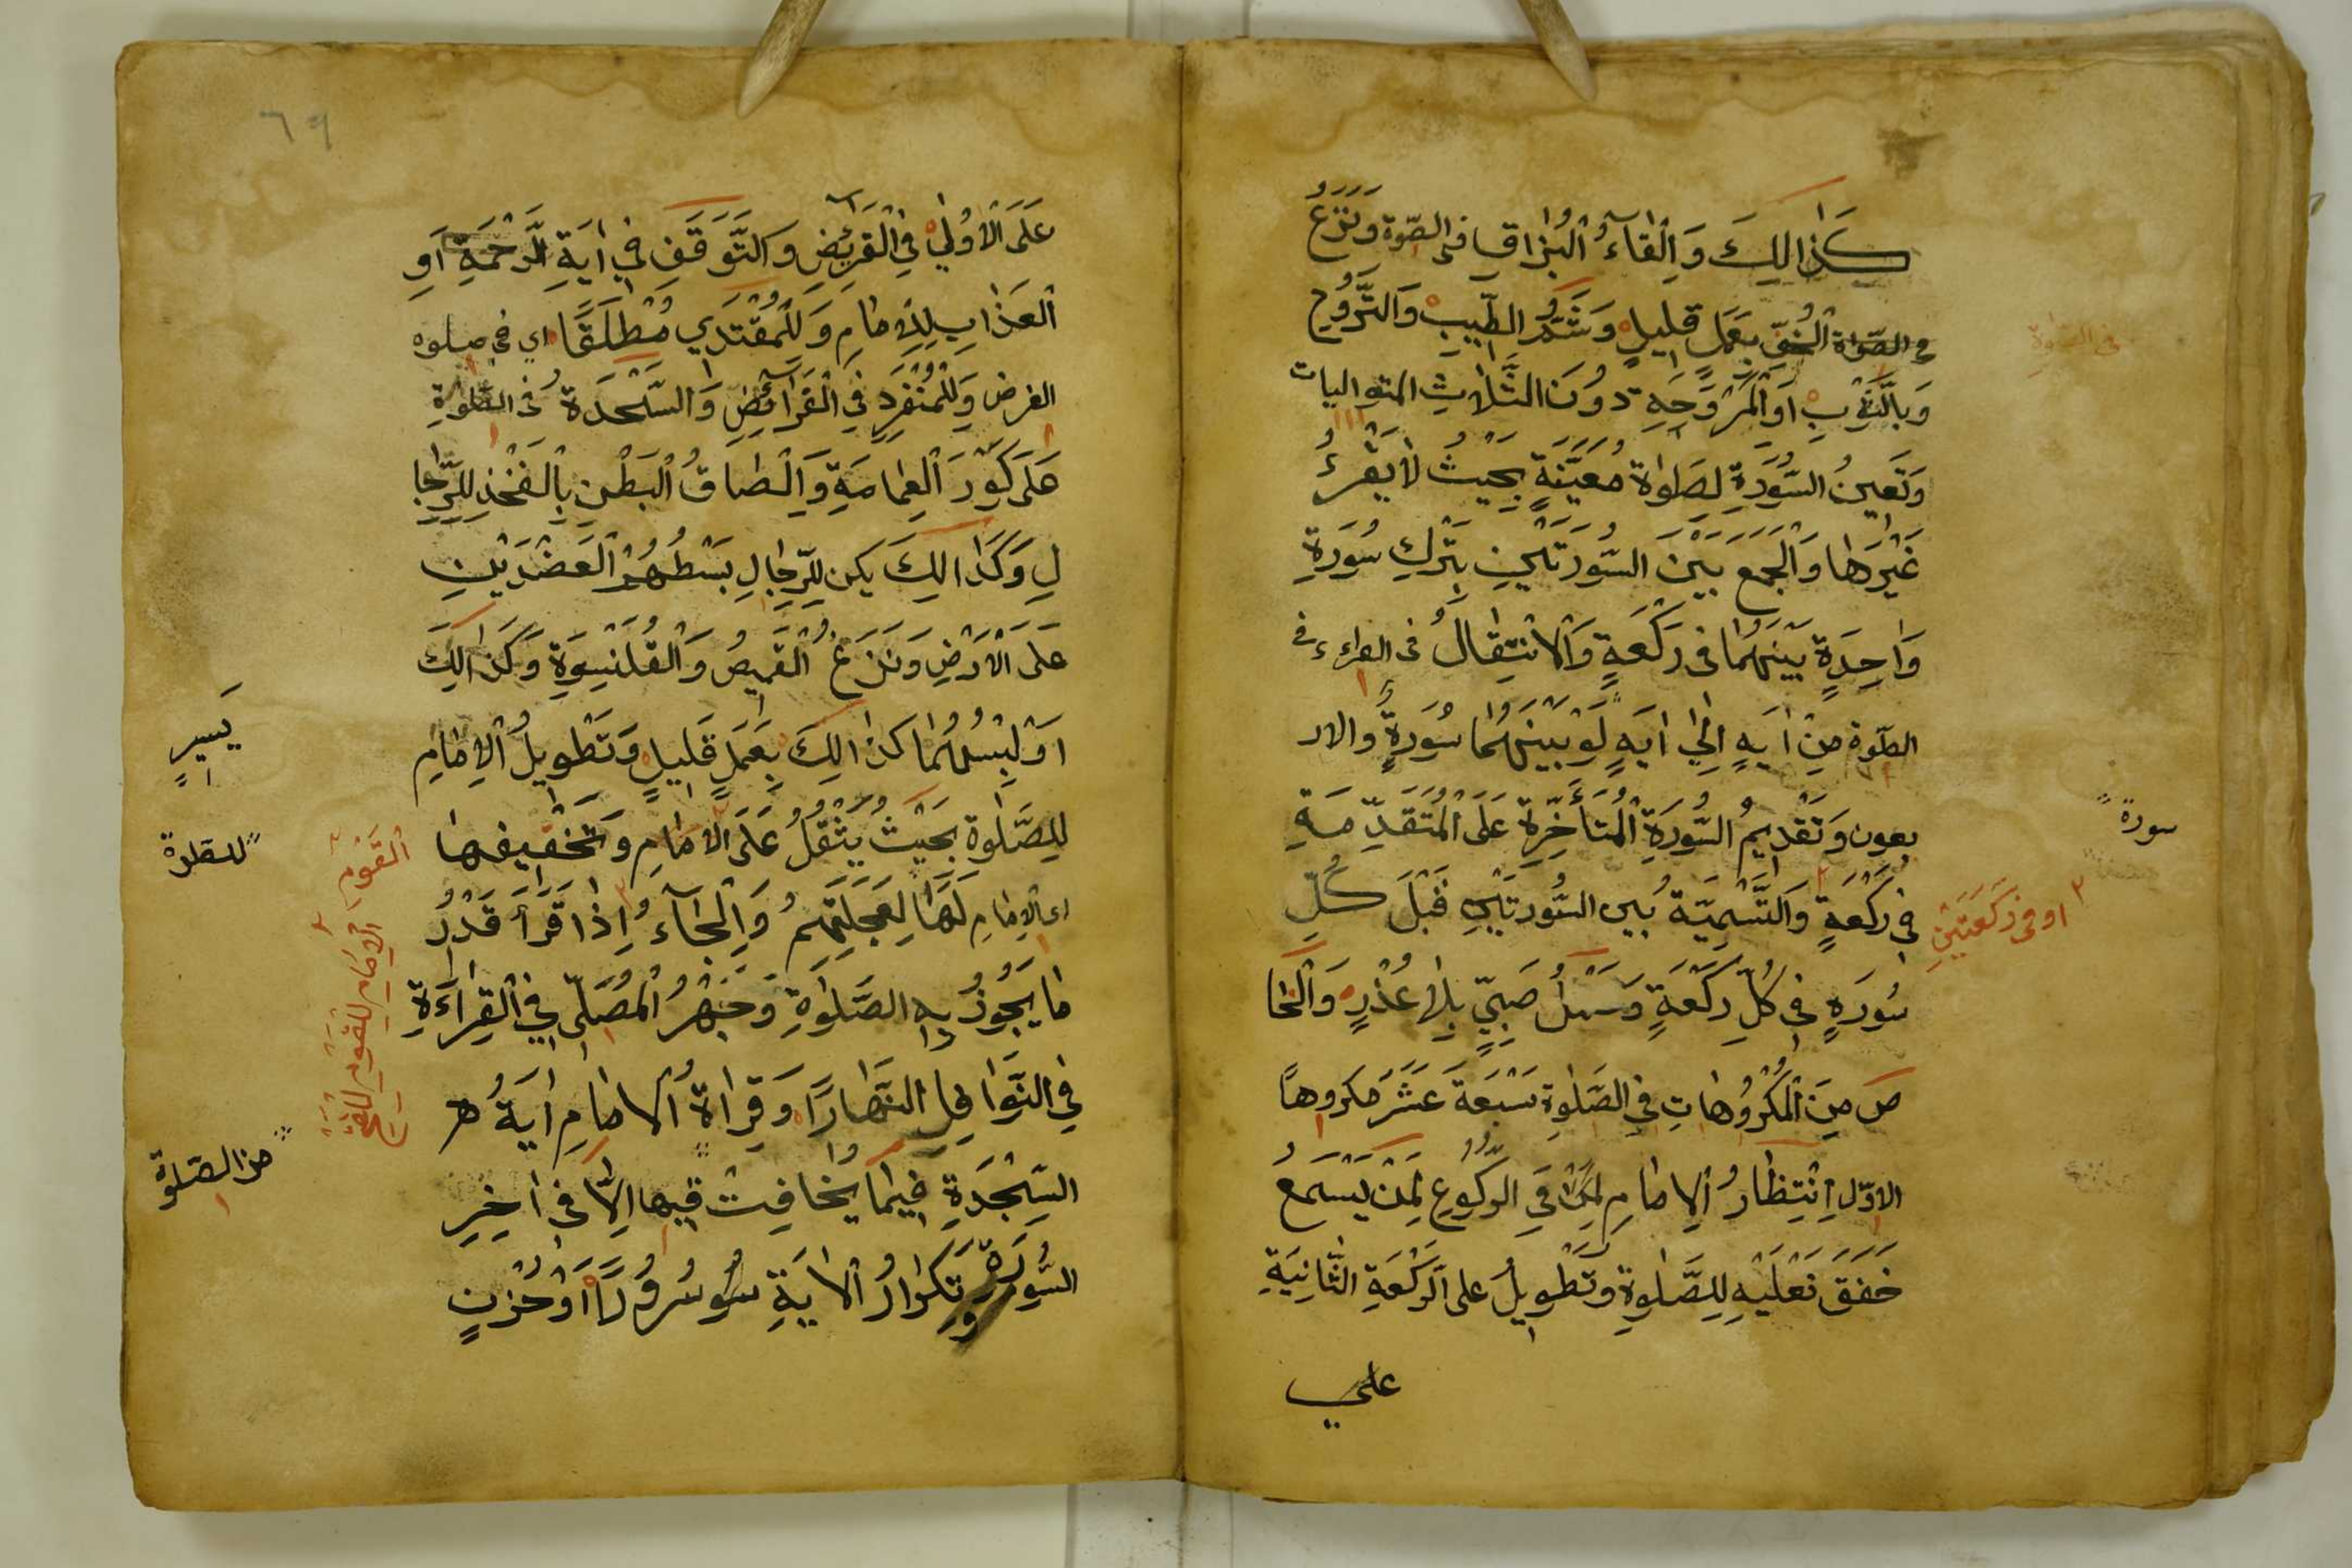 كَذَالِكَ وَاِلْقَآءُ الْبُزَاقِ فی الصّلوة وَنَزْعُ
فی الصّلوٰة الْخُفِّ بِعَمَلٍ قلیلٍ وَشَمُّ الطِّیبِ وَالتَّرَوُّحِ
وَبِالثَّوْبِ اَوِالْمَرْوَحَةِ دُونَ الثَّلَاثِ المتوالیات
وَتَعْیِینُ السُّورَةِ لِصَلٰوة مُعَیَّنَةٍ بِحَیْثُ لَا یَقْرَءُ
غَیْرَهَا وَالْجَمْع بَیْنَ السُّورَتَیْنِ بِتَرْكِ سُورَةٍ
وَاحِدَةٍ بَیْنَهُمَا فی رَكْعَةٍ وَالْاِنْتِقَالُ فی القراءة فی
الصّلوة مِنْ اٰیَةٍ اِلٰی اٰیَةٍ لَوْ بَیْنَهُمَا سُورَةٌ والار
بعون وَتَقْدِیمُ السُّورَةِ الْمُتَأَخِّرَةِ عَلَی الْمُتَقَدِّمَةِ
فِی رَكْعَةٍ وَالتَّسْمِیَةُ بَین السُّورَتَیْنِ قَبْلَ كُلِّ
سُورَةٍ فِی كُلِّ رَكْعَةٍ وَحَمْلُ صَبِیٍّ بِلَا عُذْرٍ وَالْخَا
مس مِنَ الْمَكْرُوهَاتِ فِی الصَّلٰوةِ سَبْعَةَ عَشَرَ مكروهاً
الاوّل اِنْتِظَارُ الْاِمَامِ فِی الرُّكُوعِ لِمَنْ یَسْمَعُ
خَفَقَ نَعْلَیْهِ لِلصَّلٰوةِ وَتَطْوِیلُ علی الرَّكْعَةِ الثَّانِیَةِ
علی
فی الصلوة
سورة
او فی رَكْعَتَیْنِ
٦٩
عَلَی الْاُوْلٰی فِی الْفَرَآئِضِ وَالتَّوَقُّفِ فِی اٰیَةِ الرَّحْمَةِ اَوِ
الْعَذَابِ لِلْاِمَامِ وَلِلْمُقْتَدِی مُطْلَقًا ای فی صلوه
الفرض وَلِلْمُنْفَرِدِ فِی الْفَرَآئِضِ وَالسَّجْدَةُ فی الصَّلٰوةِ
عَلَی كَوْرِ الْعِمَامَةِ وَاِلْصَاقُ الْبَطْنِ بِالْفَخْذِ لِلرِّجَا
لِ وَكَذَالِكَ یكره لِلرِّجَالِ بَسْطُهُمُ الْعَضُدَیْنِ
عَلَی الْاَرْضِ وَنَزْعُ الْقَمِیصِ وَالْقَلَنْسُوَةِ وَكَذَالِكَ
اَوْ لُبْسُهُمَا كَذَالِكَ بِعَمَلٍ قَلِیلٍ وَتَطْوِیلُ الْاِمَامِ
لِلصَّلٰوةِ بِحَیْثُ یَثْقُلُ عَلَی الْاِمَامِ وَتَخْفِیفُهَا
ای الاِمَامِ لَهَا لِعَجَلَتِهِمْ وَاِلْجَآءُ اِذَا قَرَأَ قَدْرُ
مَا یَجُوزُ بِهِ الصَّلٰوةِ وَجَهْرُ الْمُصَلِّی فِی الْقِرَاءَةِ
فِی النَّوَافِلِ النَّهَارًا وَقِرَاةُ الْاِمَامِ اٰیَةُ
السَّجْدَةِ فِیمَا یُخَافِتُ فِیهَا اِلَّا فِی اٰخِرِ
السُّورَةِ وَتَكْرَارُ الْاٰیَةِ سُرُورًا اَوْ حُزْنٍ
یَسِیرٍ
للصلوة
من الصّلوة
الْقَوْمِ